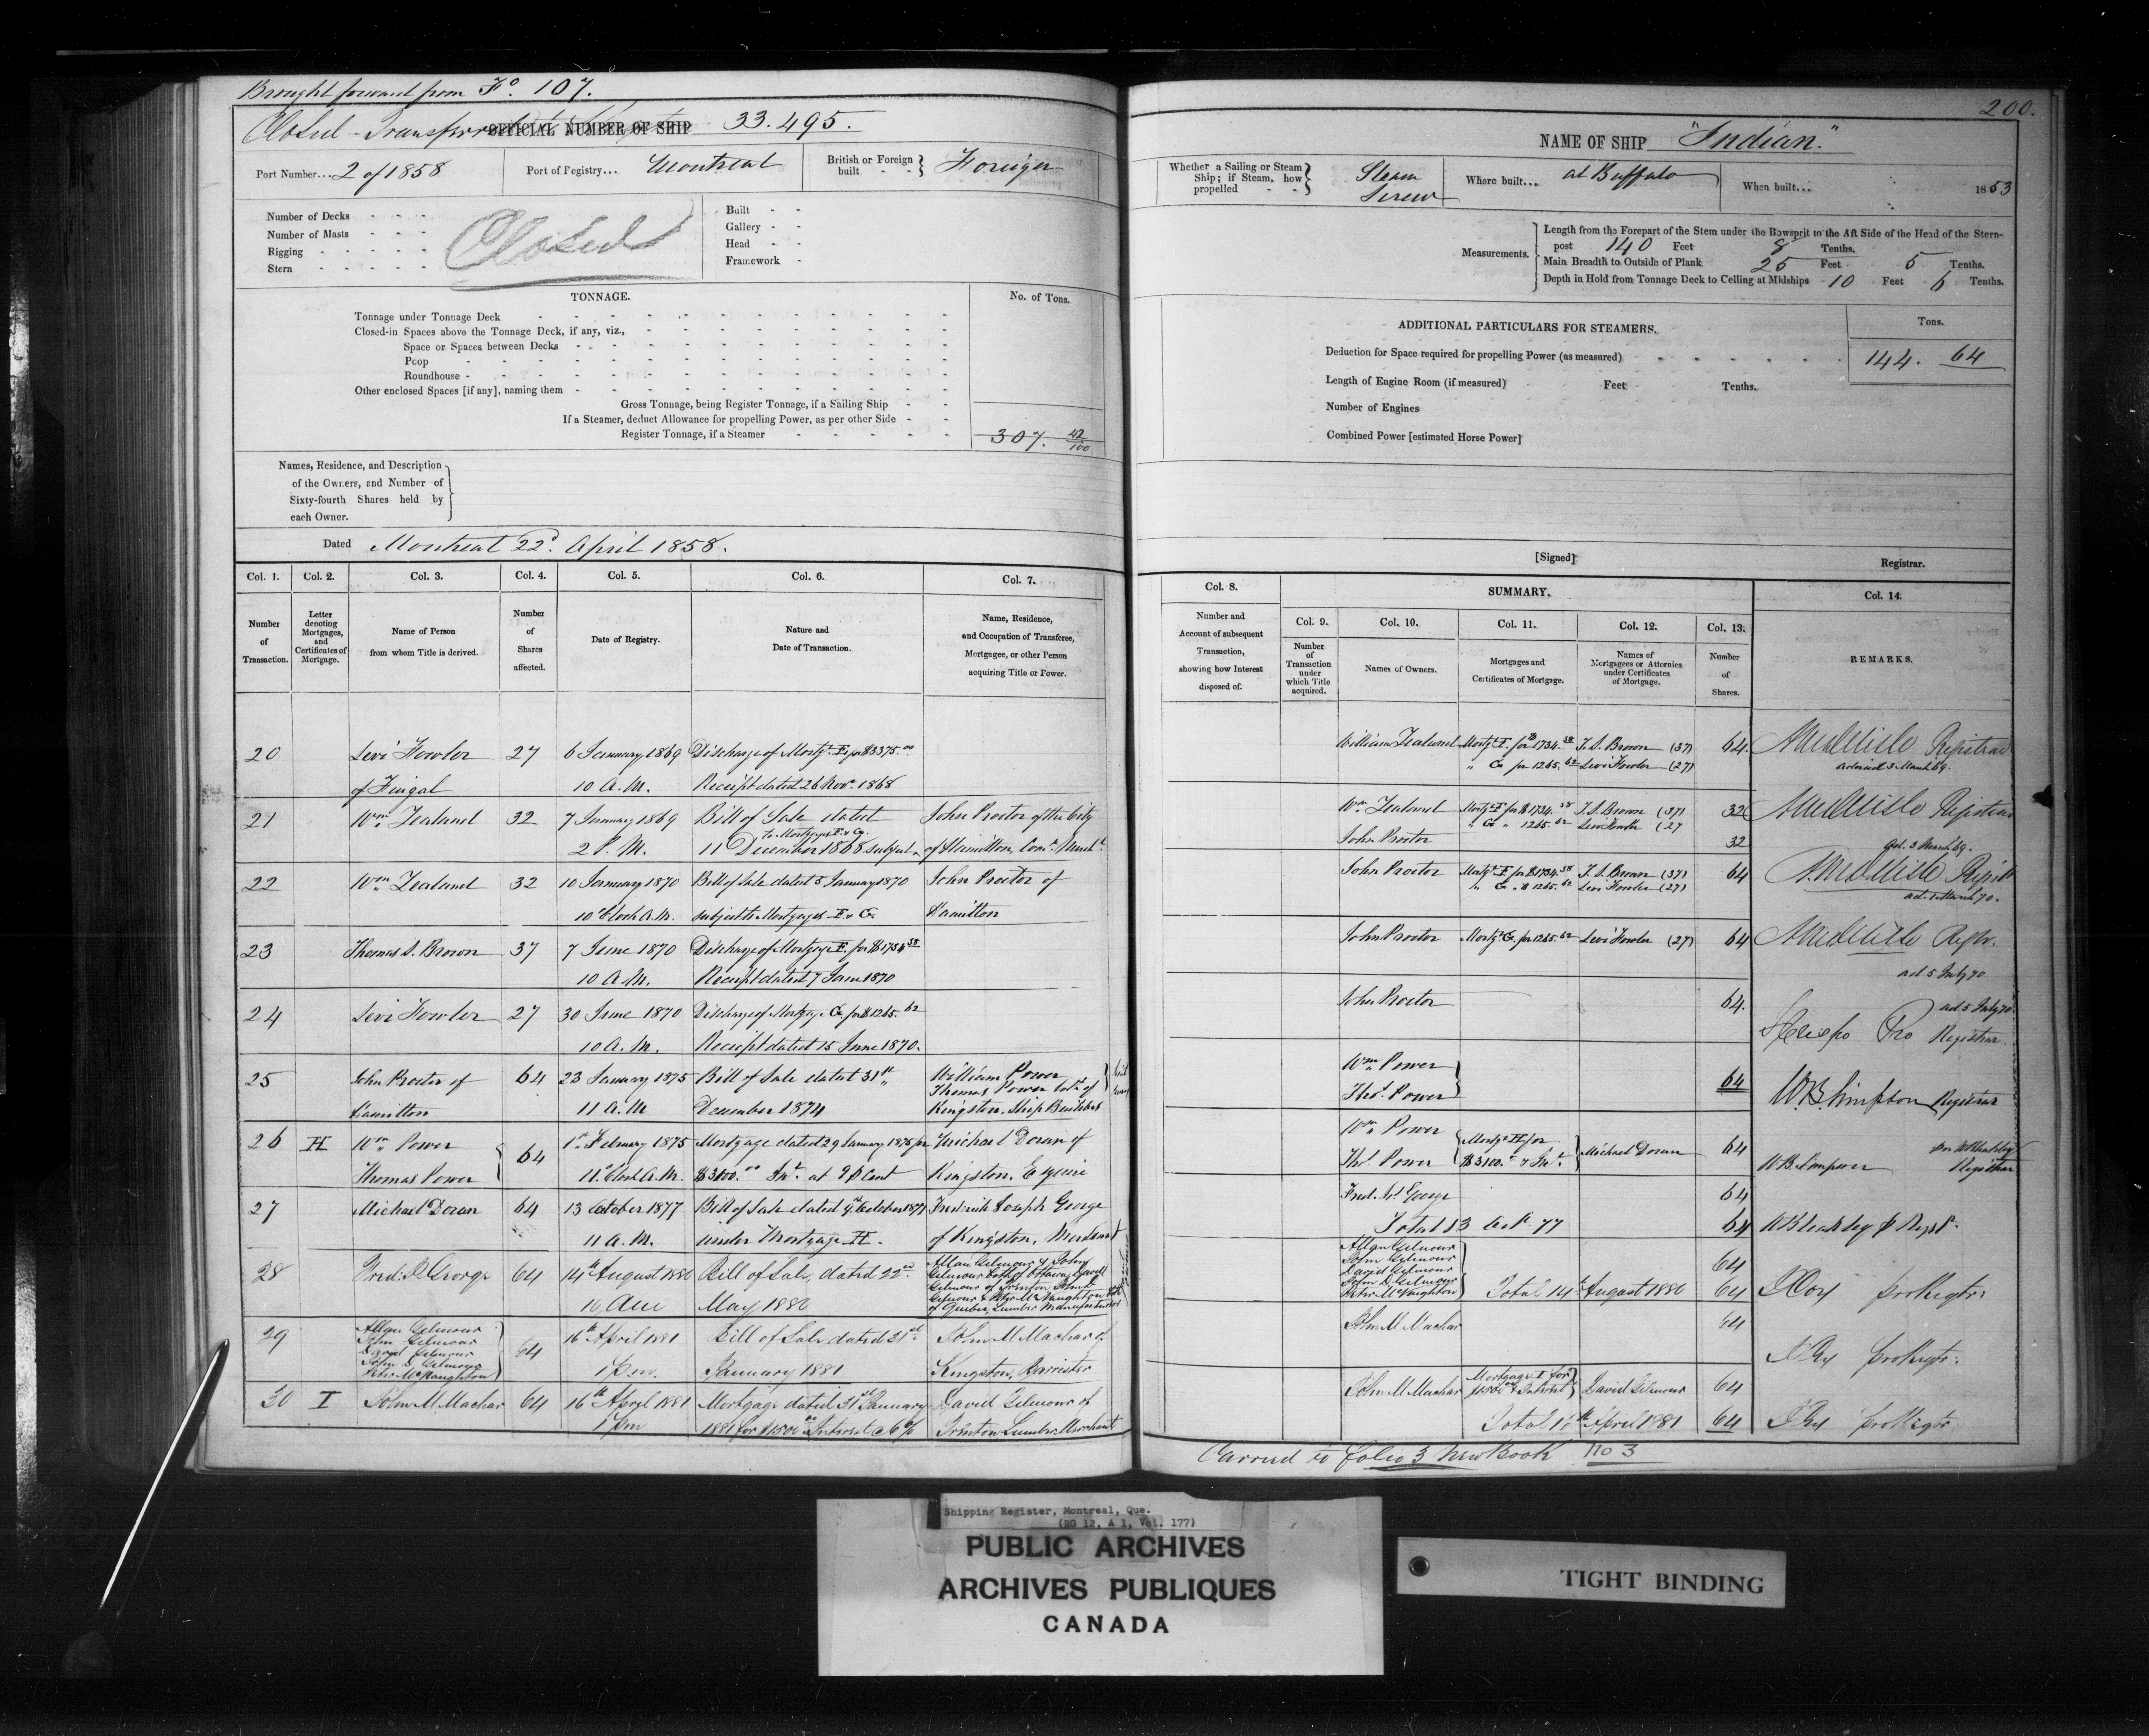 Brought forward from Fo. 107.
Closed - Transferred
OFFICIAL NUMBER OF SHIP 33.495.
Port Number... 2 of 1858
Port of Registry... Montreal
British or Foreign built - - Foreign
Number of Decks
Number of Masts
Rigging
Stern
Closed
Built
Gallery
Head
Framework
TONNAGE.
No. of Tons.
Tonnage under Tonnage Deck
Closed-in Spaces above the Tonnage Deck, if any, viz.,
Space or Spaces between Decks
Poop
Roundhouse
Other enclosed Spaces [if any], naming them
Gross Tonnage, being Register Tonnage, if a Sailing Ship
If a Steamer, deduct Allowance for propelling Power, as per other Side
Register Tonnage, if a Steamer 307. 42/100
Names, Residence, and Description
of the Owners, and Number of
Sixty-fourth Shares held by
each Owner.
Dated Montreal 22d. April 1858.
Col. 1. Col. 2. Col. 3. Col. 4. Col. 5. Col. 6. Col. 7.
Number of Transaction.
Letter denoting Mortgages, and Certificates of Mortgage.
Name of Person from whom Title is derived.
Number of Shares affected.
Date of Registry.
Nature and Date of Transaction.
Name, Residence, and Occupation of Transferee, Mortgagee, or other Person acquiring Title or Power.
20 Levi Fowler 27 6 January 1869 Discharge of Mortg. E for $3375.00
of Fingal 10 A.M. Receipt dated 26 Nov. 1868
21 Wm Zealand 32 7 January 1869 Bill of Sale dated John Proctor of the City
to Mortgages F & G.
2 P.M. 11 December 1868 subject of Hamilton, Com. Mercht.
22 Wm Zealand 32 10 January 1870 Bill of Sale dated 5 January 1870 John Proctor of
10 o'Clock A.M. subject to Mortgages F & G. Hamilton
23 Thomas S. Brown 37 7 June 1870 Discharge of Mortgage F. for $1734.38
10 A.M. Receipt dated 7 June 1870
24 Levi Fowler 27 30 June 1870 Discharge of Mortgage G for $1265.62
10 A.M. Receipt dated 15 June 1870.
25 John Proctor of 64 23 January 1875 Bill of Sale dated 31st William Power
Thomas Power both of
Hamilton 11 A.M December 1874 Kingston, Ship Builders
26 H Wm Power 64 1st February 1875 Mortgage dated 29 January 1875 for Michael Doran of
Thomas Power 11 o'Clock A.M. $3100.00 Int. at 9 p Cent Kingston, Esquire
27 Michael Doran 64 13 October 1877 Bill of Sale dated October 1877 Frederick Joseph George
11 A.M. under Mortgage H. of Kingston, Merchant
28 Fred. J. George 64 14th August 1880 Bill of Sale, dated 22nd Allan Gilmour & John
Gilmour both of Ottawa, David
Gilmour of Trenton, John D.
10 AM May 1880 Gilmour & Peter McNaughton both
of Quebec, Lumber Manufacturers
29 Allan Gilmour
John Gilmour
David Gilmour
John D. Gilmour
Peter McNaughton 64 16th April 1881 Bill of Sale dated 31st John M Machar of
1 p.m. January 1881 Kingston, Barrister
30 I John M. Machar 64 16th April 1881 Mortgage dated 31st January David Gilmour of
1 pm 1881 for $1500.00 Interest @ 6% Trenton Lumber Merchant
200.
NAME OF SHIP "Indian."
Whether a Sailing or Steam Ship; if Steam, how propelled - - Steam Screw
Where built... at Buffalo
When built... 1853
Measurements.
Length from the Forepart of the Stem under the Bowsprit to the Aft Side of the Head of the Stern-
post 140 Feet 8 Tenths.
Main Breadth to Outside of Plank 25 Feet 5 Tenths.
Depth in Hold from Tonnage Deck to Ceiling at Midships 10 Feet 6 Tenths.
ADDITIONAL PARTICULARS FOR STEAMERS.
Tons.
Deduction for Space required for propelling Power (as measured) 144. 64
Length of Engine Room (if measured) Feet Tenths.
Number of Engines
Combined Power [estimated Horse Power]
[Signed] Registrar.
Col. 8. SUMMARY. Col. 14.
Number and Account of subsequent Transaction, showing how Interest disposed of.
Col. 9. Col. 10. Col. 11. Col. 12. Col. 13.
Number of Transaction under which Title acquired.
Names of Owners.
Mortgages and Certificates of Mortgage.
Names of Mortgagees or Attornies under Certificates of Mortgage.
Number of Shares.
REMARKS.
William Zealand Mortg. F. for $1734.38 T.S. Brown (37) 64 Registrar
" G for 1265.62 Levi Fowler (27)
Wm Zealand Mortg. F for $1734.38 T.S. Brown (37) 32 Registrar
" G " 1265.62 Levi Fowler (27
John Proctor 32
ad. 3 March 69.
John Proctor Mortg. F for $1734.38 T.S. Brown (37) 64
" G " $1265.62 Levi Fowler (27)
ad. 1 March 70.
John Proctor Mortg. G. for 1265.62 Levi Fowler (27) 64 Regtr.
ad 5 July 70
John Proctor 64. ad 5 July 70
Pro Registrar.
Wm Power
Thos. Power 64 WB Simpson Registrar
Wm Power
Thos. Power Mortg. H for $3100. & Int. Michael Doran 64 WB Simpson Registrar
Fred. Js. George 64
Total 13 Oct. 77 64
Allan Gilmour
John Gilmour
David Gilmour
John D. Gilmour
Peter McNaughton 64
Total 14th August 1880 64 pro Regtr.
John M Machar 64
pro Regtr.
John M Machar Mortgage I for $1500.00 & Interest David Gilmour 64
Total 16th April 1881 64 pro Regtr.
Carried to folio 3 New Book No 3
Shipping Register, Montreal, Que.
(RG 12, A 1, Vol. 177)
PUBLIC ARCHIVES
ARCHIVES PUBLIQUES
CANADA
TIGHT BINDING